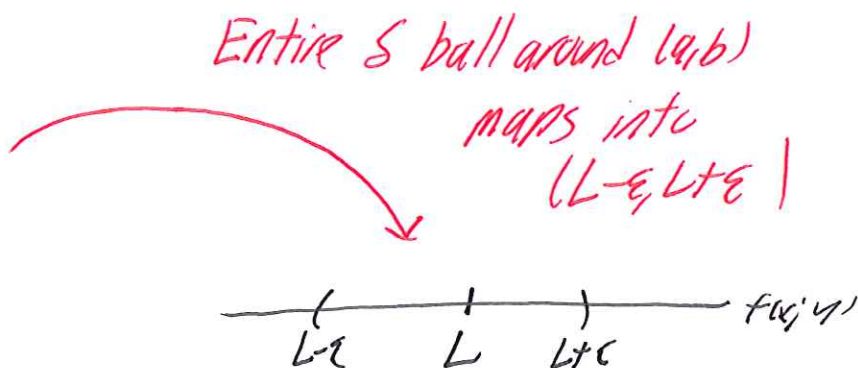 Entire δ ball around (a,b)
maps into
(L-ε, L+ε)
L-ε L L+ε f(x,y)